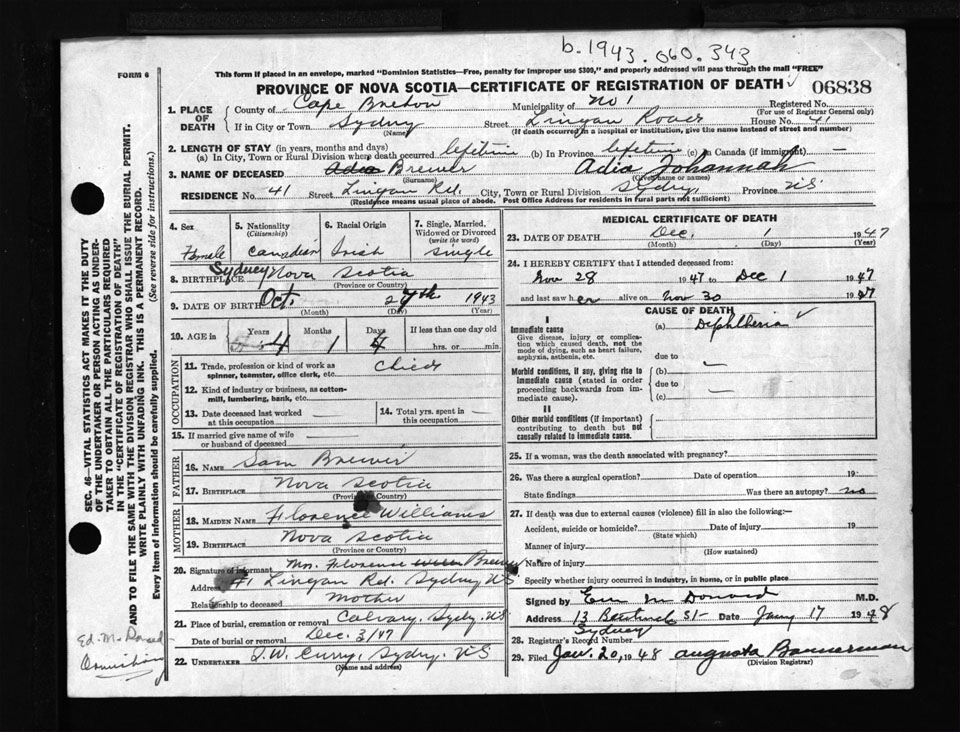 b. 1943. 060. 343
FORM 6
This form if placed in an envelope, marked "Dominion Statistics—Free, penalty for improper use $300," and properly addressed will pass through the mail "FREE"
PROVINCE OF NOVA SCOTIA—CERTIFICATE OF REGISTRATION OF DEATH 06838
1. PLACE OF DEATH County of Cape Breton Municipality of No 1 Registered No.
(For use of Registrar General only)
If in City or Town Sydney Street Lingan Road House No. 41
(Name) (If death occurred in a hospital or institution, give the name instead of street and number)
2. LENGTH OF STAY (in years, months and days)
(a) In City, Town or Rural Division where death occurred lifetime (b) In Province lifetime (c) In Canada (if immigrant) —
3. NAME OF DECEASED Adia Brewer Adia Johannah
(Surname) (Given name or names)
RESIDENCE No. 41 Street Lingan Rd. City, Town or Rural Division Sydney Province N.S.
(Residence means usual place of abode. Post Office Address for residents in rural parts not sufficient)
4. Sex Female
5. Nationality (Citizenship) Canadian
6. Racial Origin Irish
7. Single, Married, Widowed or Divorced (write the word) Single
8. BIRTHPLACE Sydney Nova Scotia
(Province or Country)
9. DATE OF BIRTH Oct. 27th 1943
(Month) (Day) (Year)
10. AGE in Years 4 Months 1 Days 4 If less than one day old
hrs. or min.
OCCUPATION
11. Trade, profession or kind of work as spinner, teamster, office clerk, etc. Child
12. Kind of industry or business, as cotton-mill, lumbering, bank, etc.
13. Date deceased last worked at this occupation —
14. Total yrs. spent in this occupation —
15. If married give name of wife or husband of deceased
FATHER
16. NAME Sam Brewer
17. BIRTHPLACE Nova Scotia
(Province or Country)
MOTHER
18. MAIDEN NAME Florence Williams
19. BIRTHPLACE Nova Scotia
(Province or Country)
20. Signature of informant Mrs. Florence Brewer
Address 41 Lingan Rd. Sydney N.S.
Relationship to deceased Mother
21. Place of burial, cremation or removal Calvary, Sydney. N.S.
Date of burial or removal Dec. 3/47
22. UNDERTAKER J.W. Curry, Sydney. N.S.
(Name and address)
MEDICAL CERTIFICATE OF DEATH
23. DATE OF DEATH Dec. 1 1947
(Month) (Day) (Year)
24. I HEREBY CERTIFY that I attended deceased from:
Nov 28 1947 to Dec 1 1947
and last saw her alive on Nov 30 1947
CAUSE OF DEATH
I
Immediate cause (a) Diphtheria
Give disease, injury or complication which caused death, not the mode of dying, such as heart failure, asphyxia, asthenia, etc.
due to
Morbid conditions, if any, giving rise to immediate cause (stated in order proceeding backwards from immediate cause). (b) —
due to —
(c)
II
Other morbid conditions (if important) contributing to death but not causally related to immediate cause.
25. If a woman, was the death associated with pregnancy?
26. Was there a surgical operation? Date of operation 19
State findings Was there an autopsy? no
27. If death was due to external causes (violence) fill in also the following:—
Accident, suicide or homicide? Date of injury 19
(State which)
Manner of injury
(How sustained)
Nature of injury
Specify whether injury occurred in industry, in home, or in public place
Signed by McDonald M.D.
Address 13 St Date Jany 17 1948
Sydney
28. Registrar's Record Number
29. Filed Jan. 20, 1948 Augusta Bannerman
(Division Registrar)
SEC. 46—VITAL STATISTICS ACT MAKES IT THE DUTY OF THE UNDERTAKER OR PERSON ACTING AS UNDERTAKER TO OBTAIN ALL THE PARTICULARS REQUIRED IN THE "CERTIFICATE OF REGISTRATION OF DEATH"
AND TO FILE THE SAME WITH THE DIVISION REGISTRAR WHO SHALL ISSUE THE BURIAL PERMIT.
WRITE PLAINLY WITH UNFADING INK. THIS IS A PERMANENT RECORD.
Every item of information should be carefully supplied. (See reverse side for instructions.)